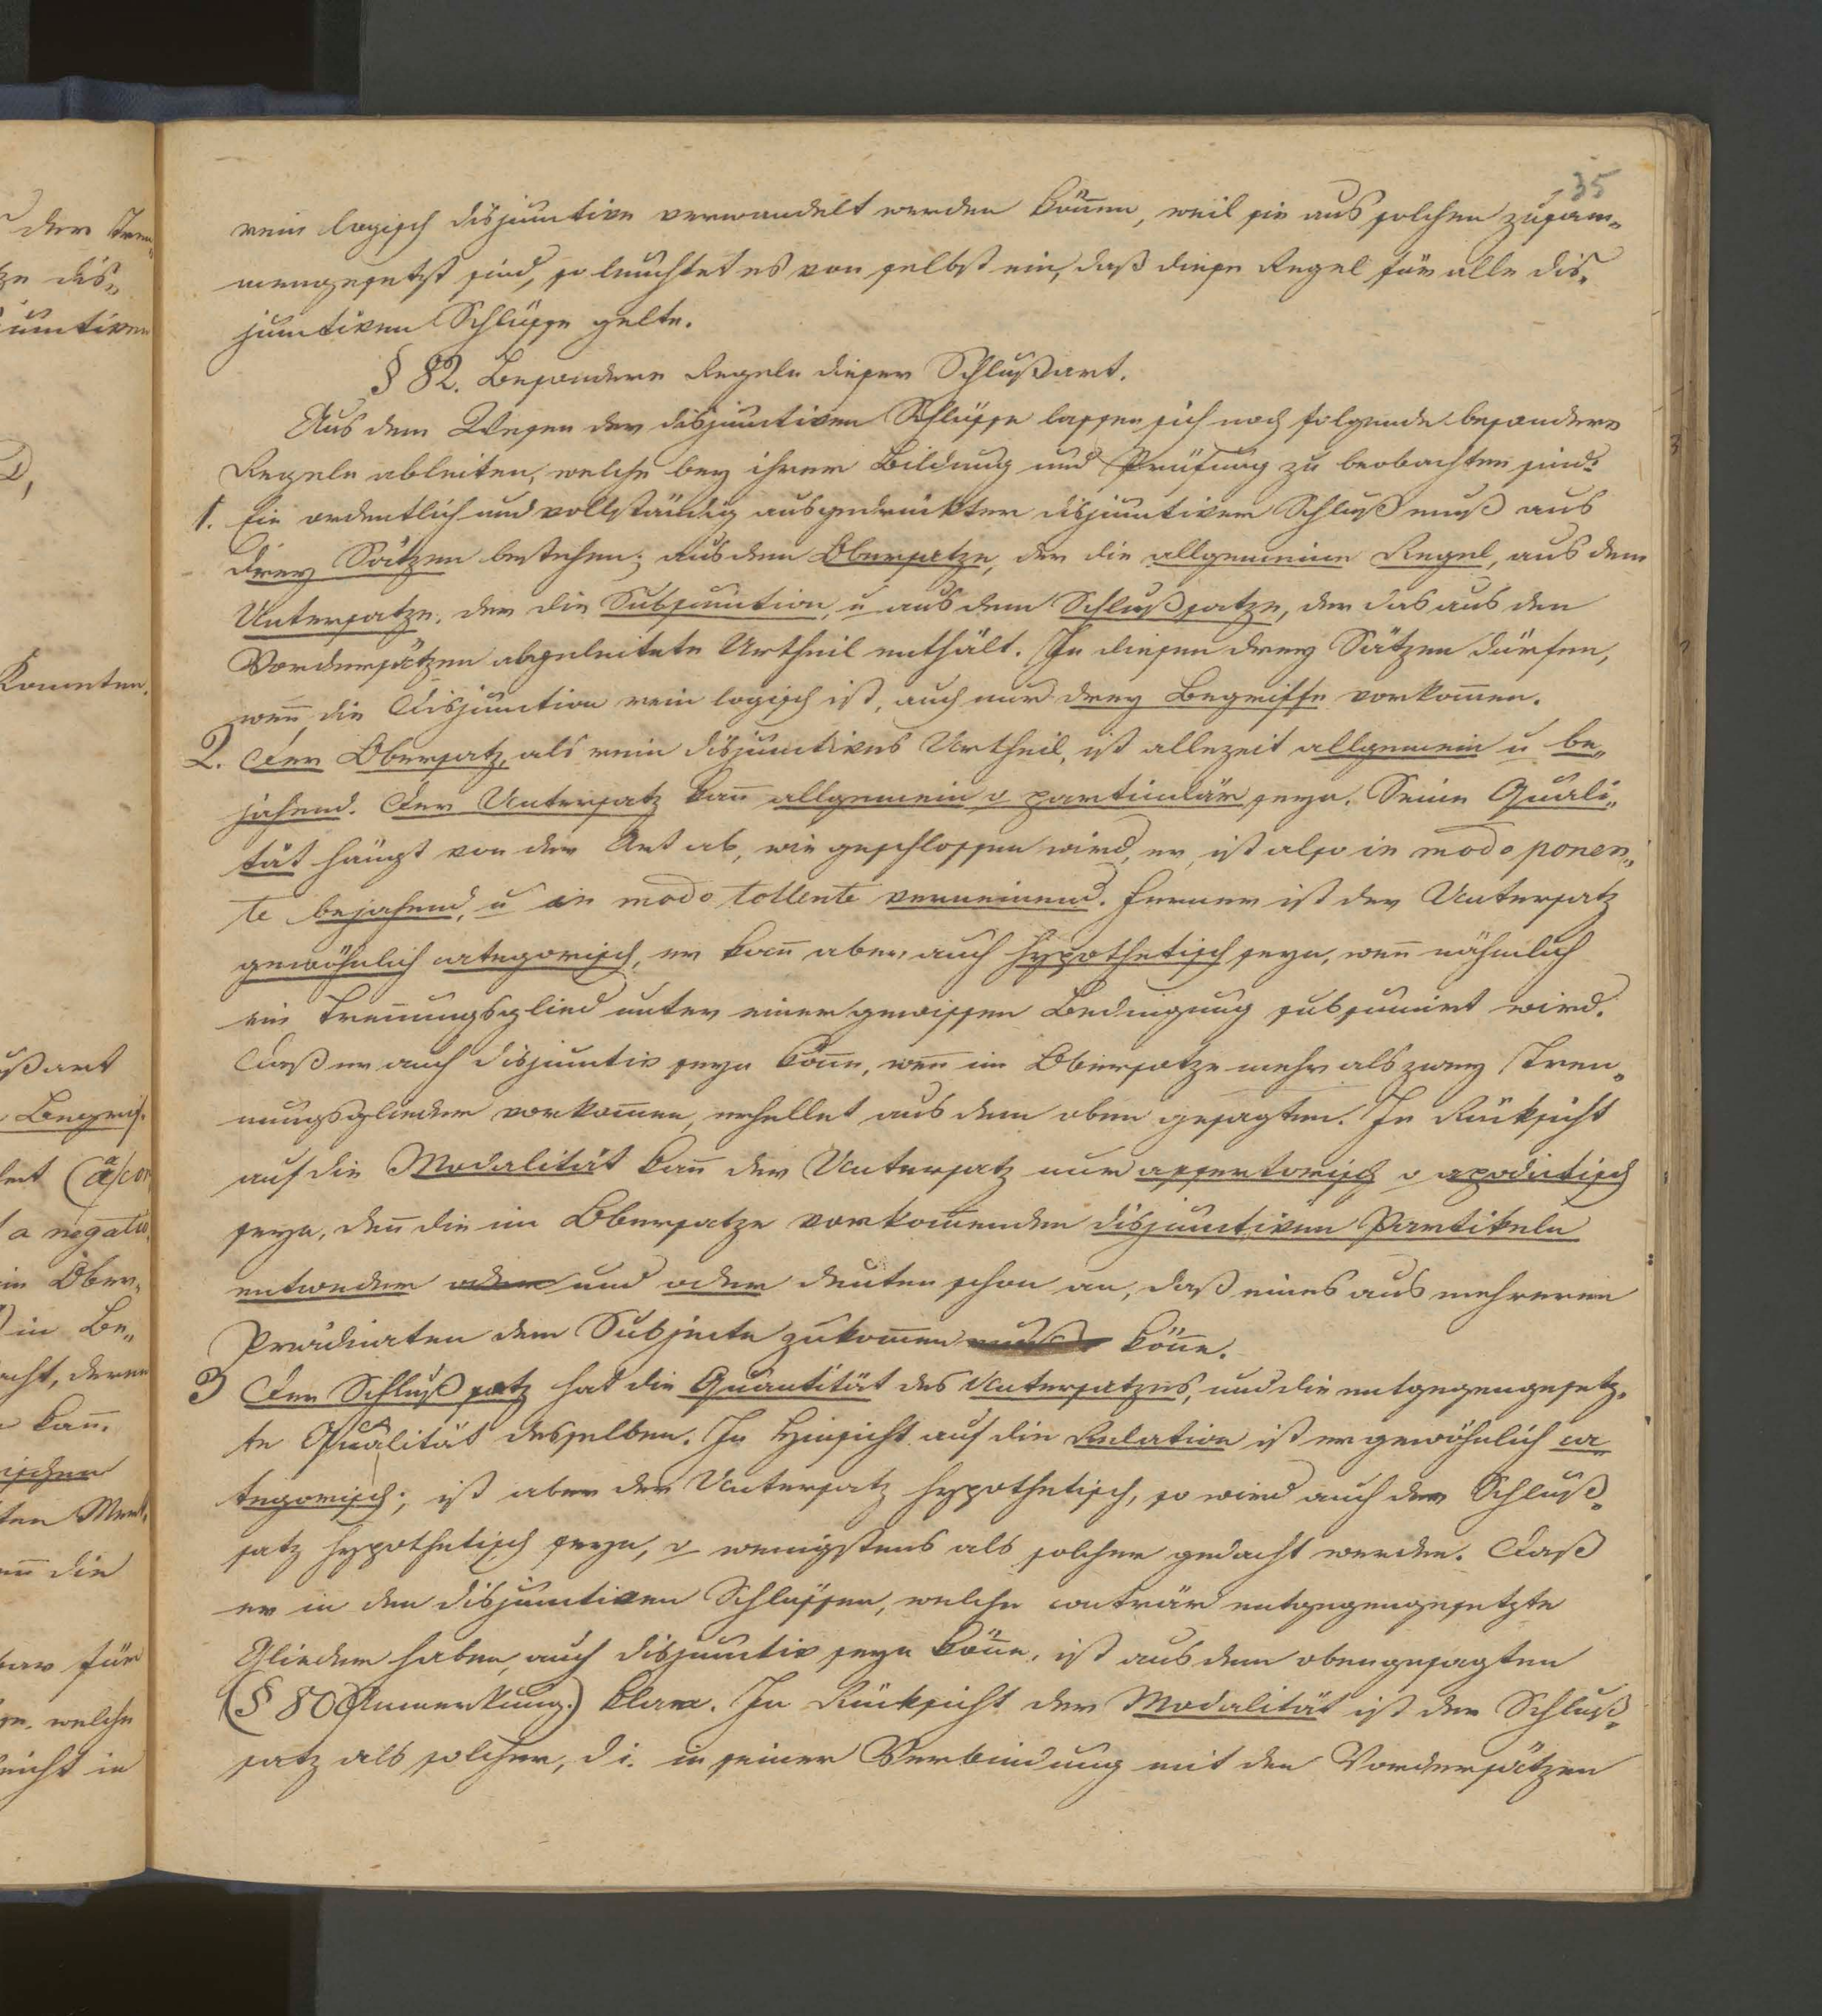 35
rein logisch disjunctive verwandelt werden könen, weil sie aus solchen zusam„
mengesetzt sind, so leuchtet es von selbst ein, daß diese Regel für alle dis„
junctiven Schlüsse gelte.
§ 82. Besondere Regeln dieser Schlußart.
Aus dem Wesen der disjunctiven Schlüsse lassen sich noch folgende besondere
Regeln ableiten, welche bey ihrer Bildung und Prüfung zu beobachten sind:
1. Ein ordentlich und vollständig ausgedrückter disjunctiver Schluß muß aus
drey Sätzen bestehen; aus dem Obersatze, der die allgemeine Regel, aus dem
Untersatze, der die Subsumtion, u aus dem Schlußsatze, der das aus den
Vordersätzen abgeleitete Urtheil enthält. In diesen drey Sätzen dürfen,
wen̄ die Disjunction rein logisch ist, auch nur drey Begriffe vorkom̄en.
2. Der Obersatz, als rein disjunctives Urtheil, ist allezeit allgemein u be„
jahend. Der Untersatz kan̄ allgemein o particulär seyn. Seine Quali„
tät hängt von der Art ab, wie geschlossen wird, er ist also in modo ponen„
te bejahend, u in modo tollente verneinend. Ferner ist der Untersatz
gewöhnlich categorisch, er kan̄ aber auch hypothetisch seyn, wen̄ nähmlich
ein Tren̄ungsglied unter einer gewissen Bedingung subsumirt wird.
Daß er auch disjunctiv seyn kön̄e, wen̄ im Obersatze mehr als zwey Tren„
nungsglieder vorkom̄en, erhellet aus dem oben gesagten. In Rücksicht
auf die Modalität kan̄ der Untersatz nur assertorisch o apodictisch
seyn, den̄ die im Obersatze vorkom̄enden disjunctiven Partikeln
entweder oder und oder deuten schon an, daß eines aus mehreren
Prädicaten dem Subjecte zukom̄en kön̄e.
3 Der Schlußsatz hat die Quantität des Untersatzes, und die entgegengesetz„
te Qualität desselben. In Hinsicht auf die Relation ist er gewöhnlich ca„
tegorisch; ist aber der Untersatz hypothetisch, so wird auch der Schluß„
satz hypothetisch seyn, o wenigstens als solcher gedacht werden. Daß
er in den disjunctiven Schlüssen, welche conträr entgegengesetzte
Glieder haben, auch disjunctiv seyn kön̄e, ist aus dem obengesagten
(§ 80 Anmerkung.) klar. In Rücksicht der Modalität ist der Schluß„
satz als solcher, d i. in seiner Verbindung mit den Vordersätzen